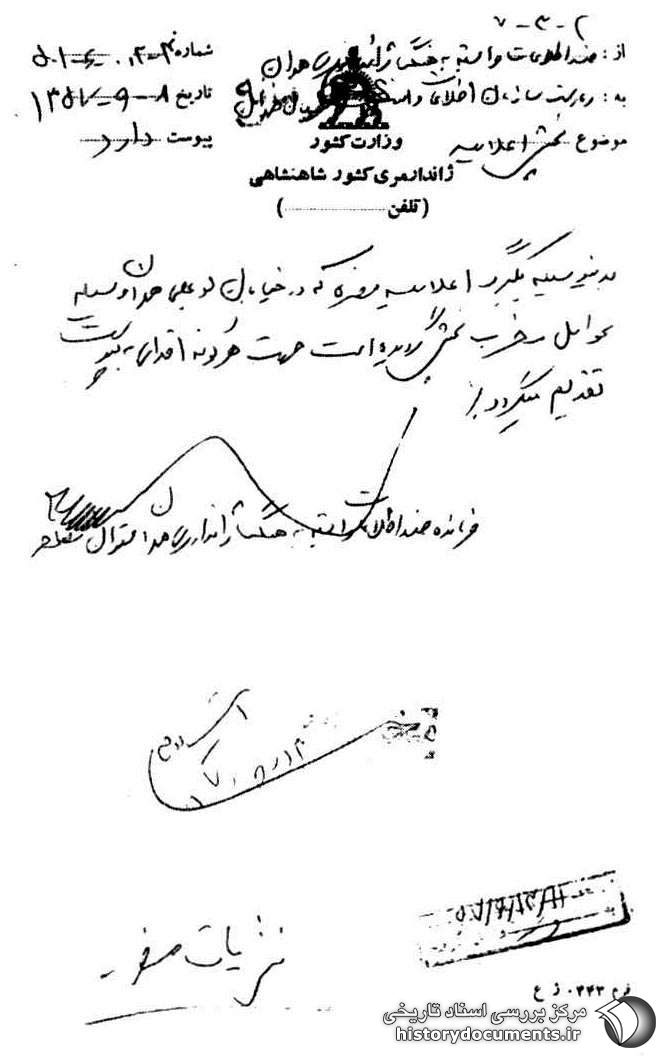 ۷-۳-۲
از: ضد اطلاعات وابسته به هنگ ژاندارمری همدان
به: ریاست سازمان اطلاعات و امنیت
موضوع پخش اعلامیه
شماره
تاریخ ۸-۹-۱۳۵۷
پیوست دارد
وزارت کشور
ژاندارمری کشور شاهنشاهی
(تلفن ....................)
بدینوسیله یکبرگ اعلامیه مضره که در خیابان بوعلی همدان وسیله
عوامل مخرب پخش گردیده است جهت هرگونه اقدام به پیوست
تقدیم میگردد
فرمانده ضد اطلاعات وابسته به هنگ ژاندارمری همدان
نشریات مضره
فرم ۰۴۴۳ ژ ع
مرکز بررسی اسناد تاریخی
historydocuments.ir